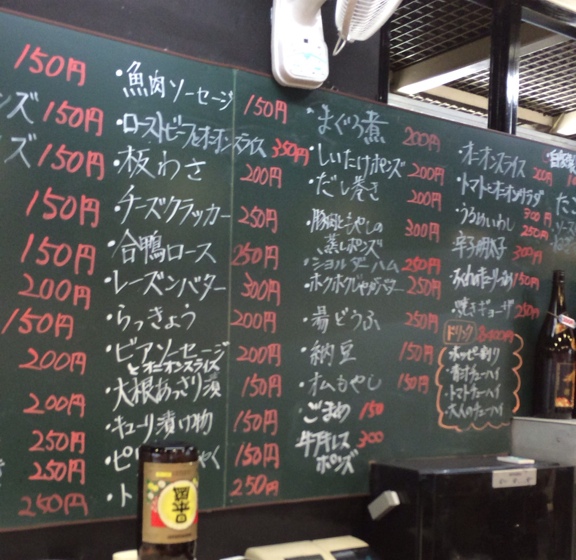 150円
ンズ 150円
ズ 150円
150円
150円
200円
150円
200円
200円
250円
250円
250円
・魚肉ソーセージ 150円
・ローストビーフとオニオンスライス 350円
・板わさ 200円
・チーズクラッカー 250円
・合鴨ロース 250円
・レーズンバター 300円
・らっきょう 200円
・ビアソーセージ 200円
とオニオンスライス
・大根あっさり漬 150円
・キューリ漬け物 150円
・ピリ 150円
・ト 250円
・まぐろ煮 200円
・しいたけポンズ 200円
・だし巻き 200円
・豚肉ともやしの 300円
蒸しポンズ
・ショルダーハム 250円
・ホクホクじゃがバター 250円
・湯どうふ 250円
・納豆 150円
・オムもやし 150円
・ごまめ 150
・牛肝レス 300
ポンズ
・オニオンスライス 200円
・トマトとオニオンサラダ 300円
・うるめいわし 250円
・辛子明太子 300円
150円
・焼きギョーザ 250円
ドリンク
・ホッピー割り
・青汁チューハイ
・トマトチューハイ
・大人のチューハイ